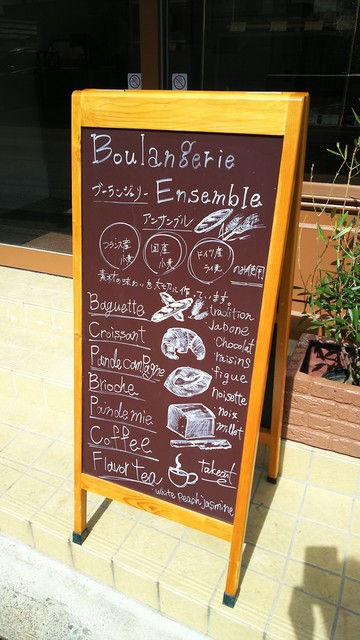 Boulangerie
ブーランジェリー Ensemble
アンサンブル
フランス産小麦 国産小麦 ドイツ産ライ麦 のみ使用
素材の味わいを大切に作っています。
Baguette tradition
Croissant Jabone
Chocolat
Pandecampagne raisins
figue
Brioche noisette
Paindemie noix
millet
Coffee
Flavor tea takeout
white peach jasmine